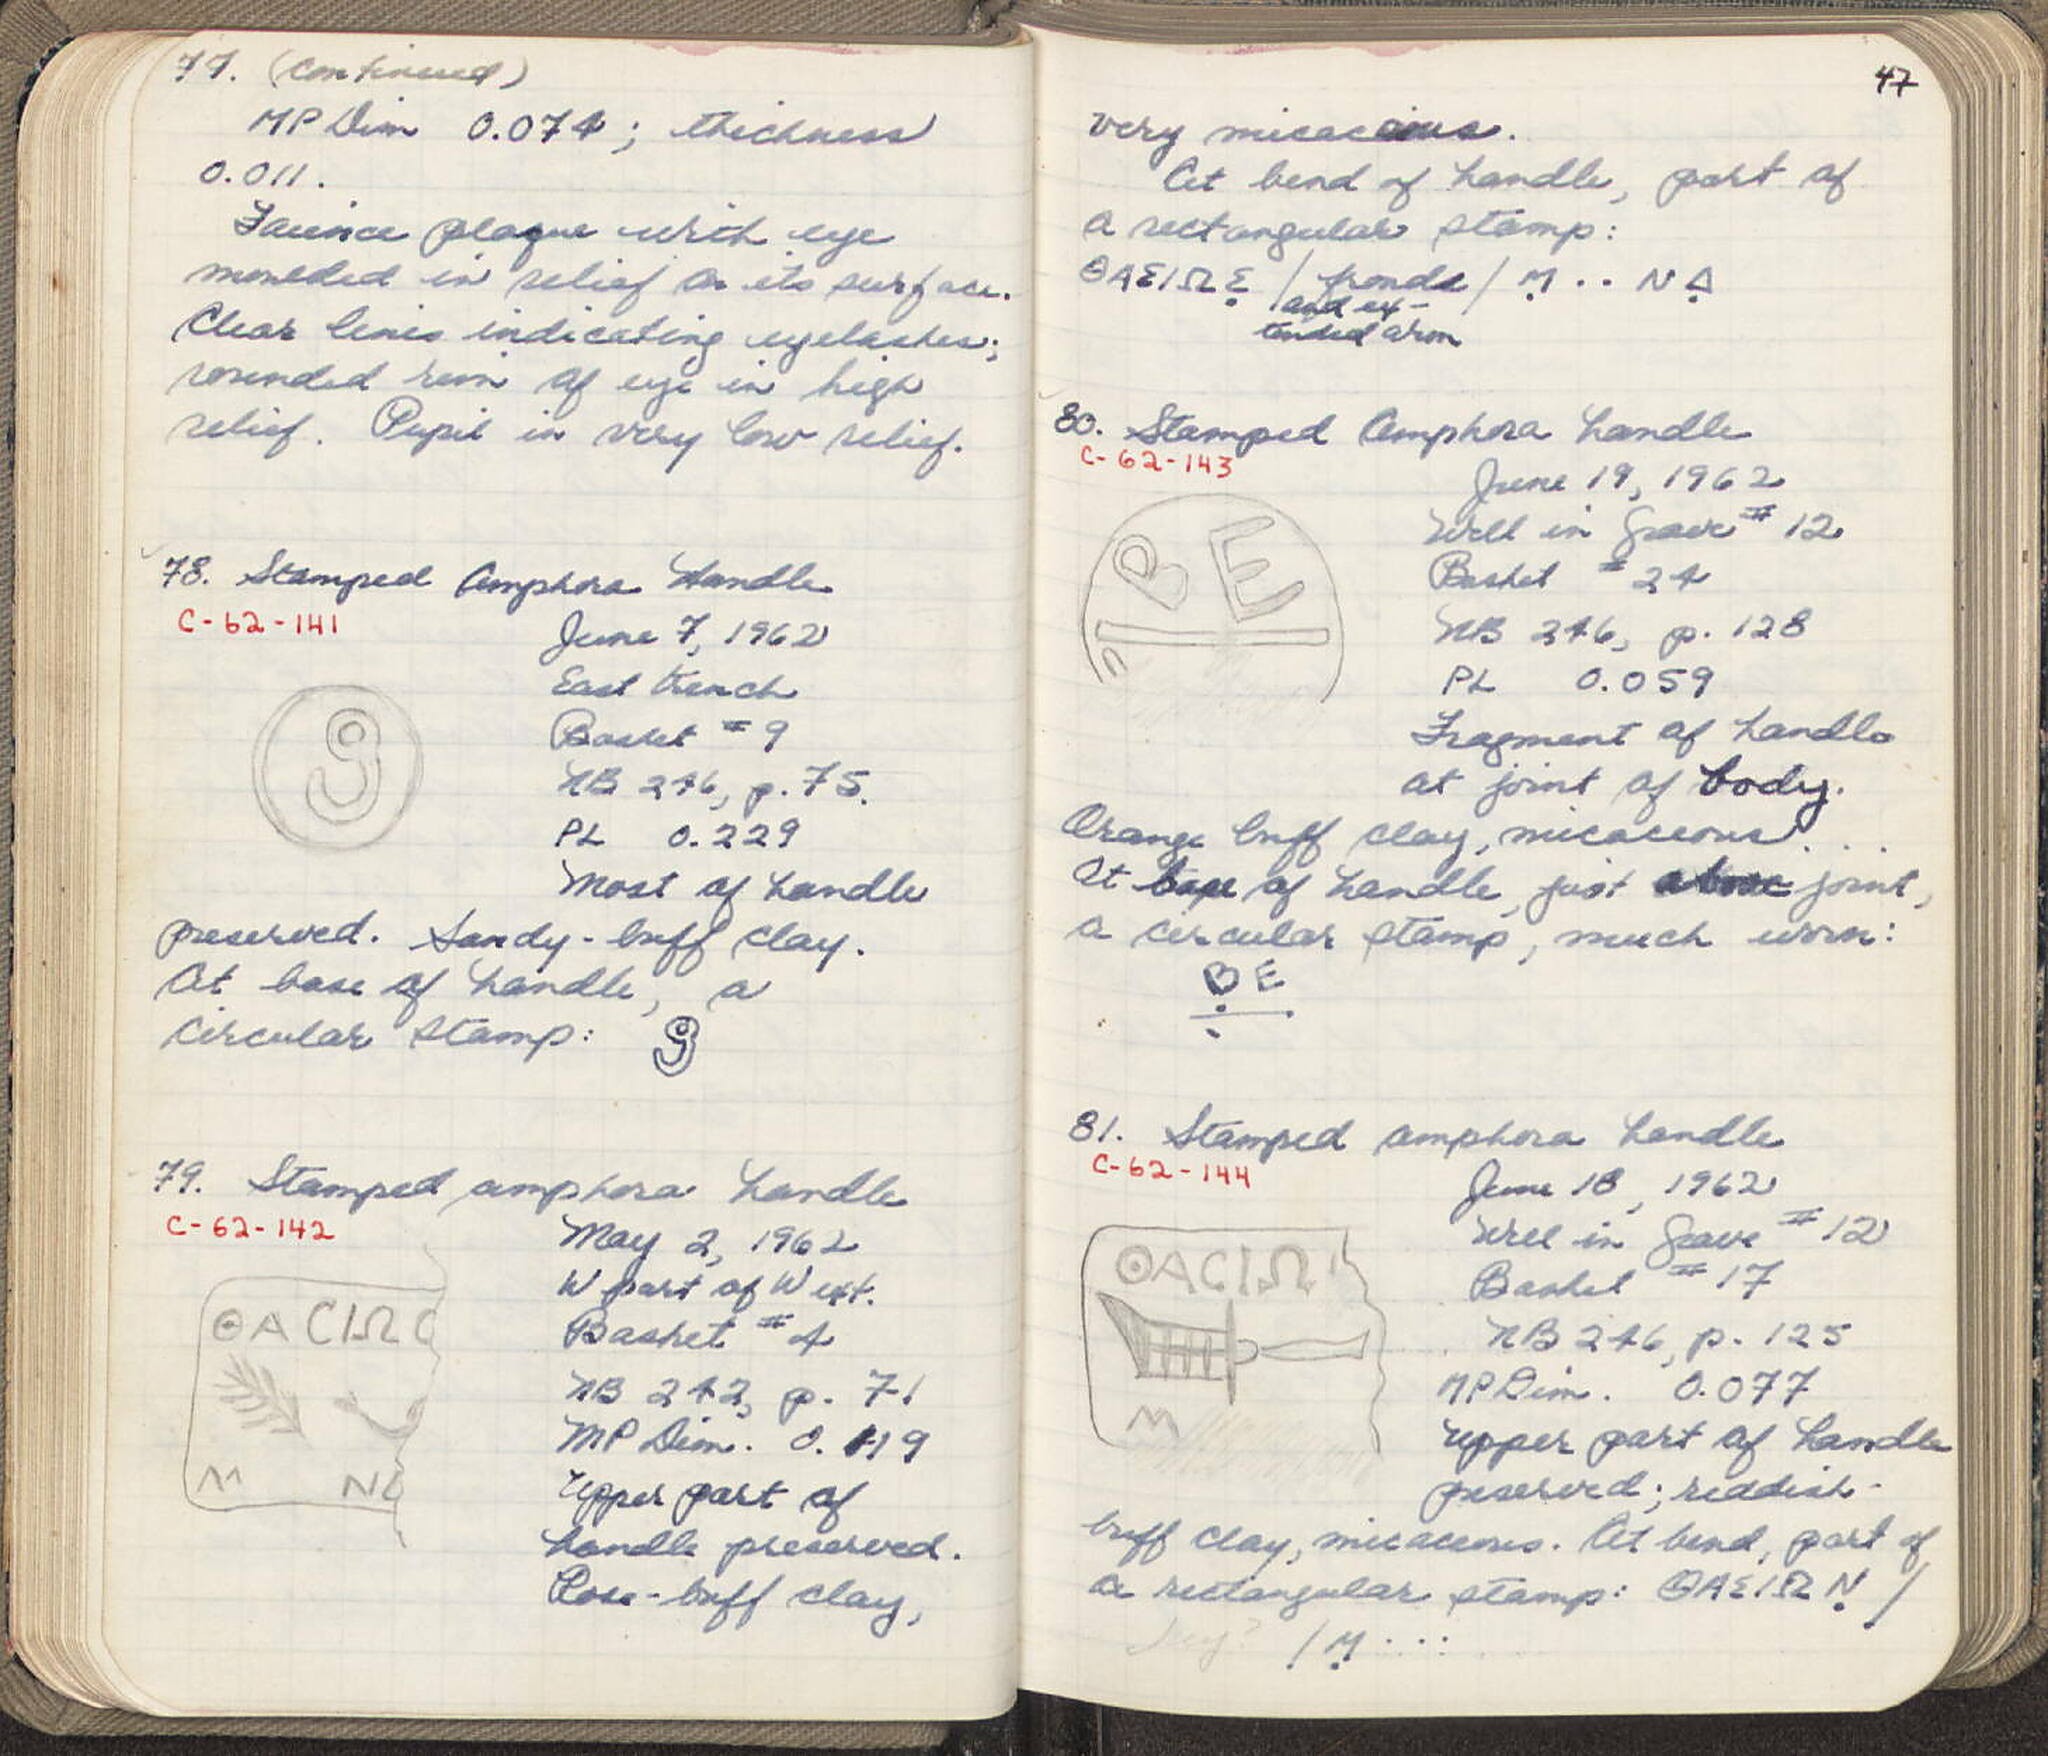 77. (continued)
MP Dim 0.074; thickness
0.011.
Faience plaque with eye
moulded in relief on its surface.
Clear lines indicating eyelashes;
rounded rim of eye in high
relief. Pupil in very low relief.
78. Stamped Amphora Handle
C-62-141
June 7, 1962
East trench
Basket #9
NB 246, p. 75.
PL 0.229
Most of handle
preserved. Sandy-buff clay.
At base of handle, a
circular stamp:
79. Stamped amphora handle
C-62-142
May 2, 1962
W part of W ext.
Basket #4
NB 242, p. 71
MP Dim. 0.119
Upper part of
handle preserved.
Rose-buff clay,
ΘΑCΙΩC
M NΔ
47
very micaceous.
At bend of handle, part of
a rectangular stamp:
ΘΑΣΙΩΣ̣ / fronds / Ṃ . . NΑ̣
and ex-
tended arm
80. Stamped Amphora handle
C-62-143
June 19, 1962
Well in Grave #12
Basket #24
NB 246, p. 128
PL 0.059
Fragment of handle
at joint of body.
BE
Orange buff clay, micaceous. . .
At base of handle, just above joint,
a circular stamp, much worn:
BE
81. Stamped amphora handle
C-62-144
June 18, 1962
Well in Grave #12
Basket #17
NB 246, p. 125
MP Dim. 0.077
Upper part of handle
preserved; reddish-
ΘΑCΙΩΙ
M
buff clay, micaceous. At bend, part of
a rectangular stamp: ΘΑΣΙΩΝ̣ /
/ Ṃ . . . :